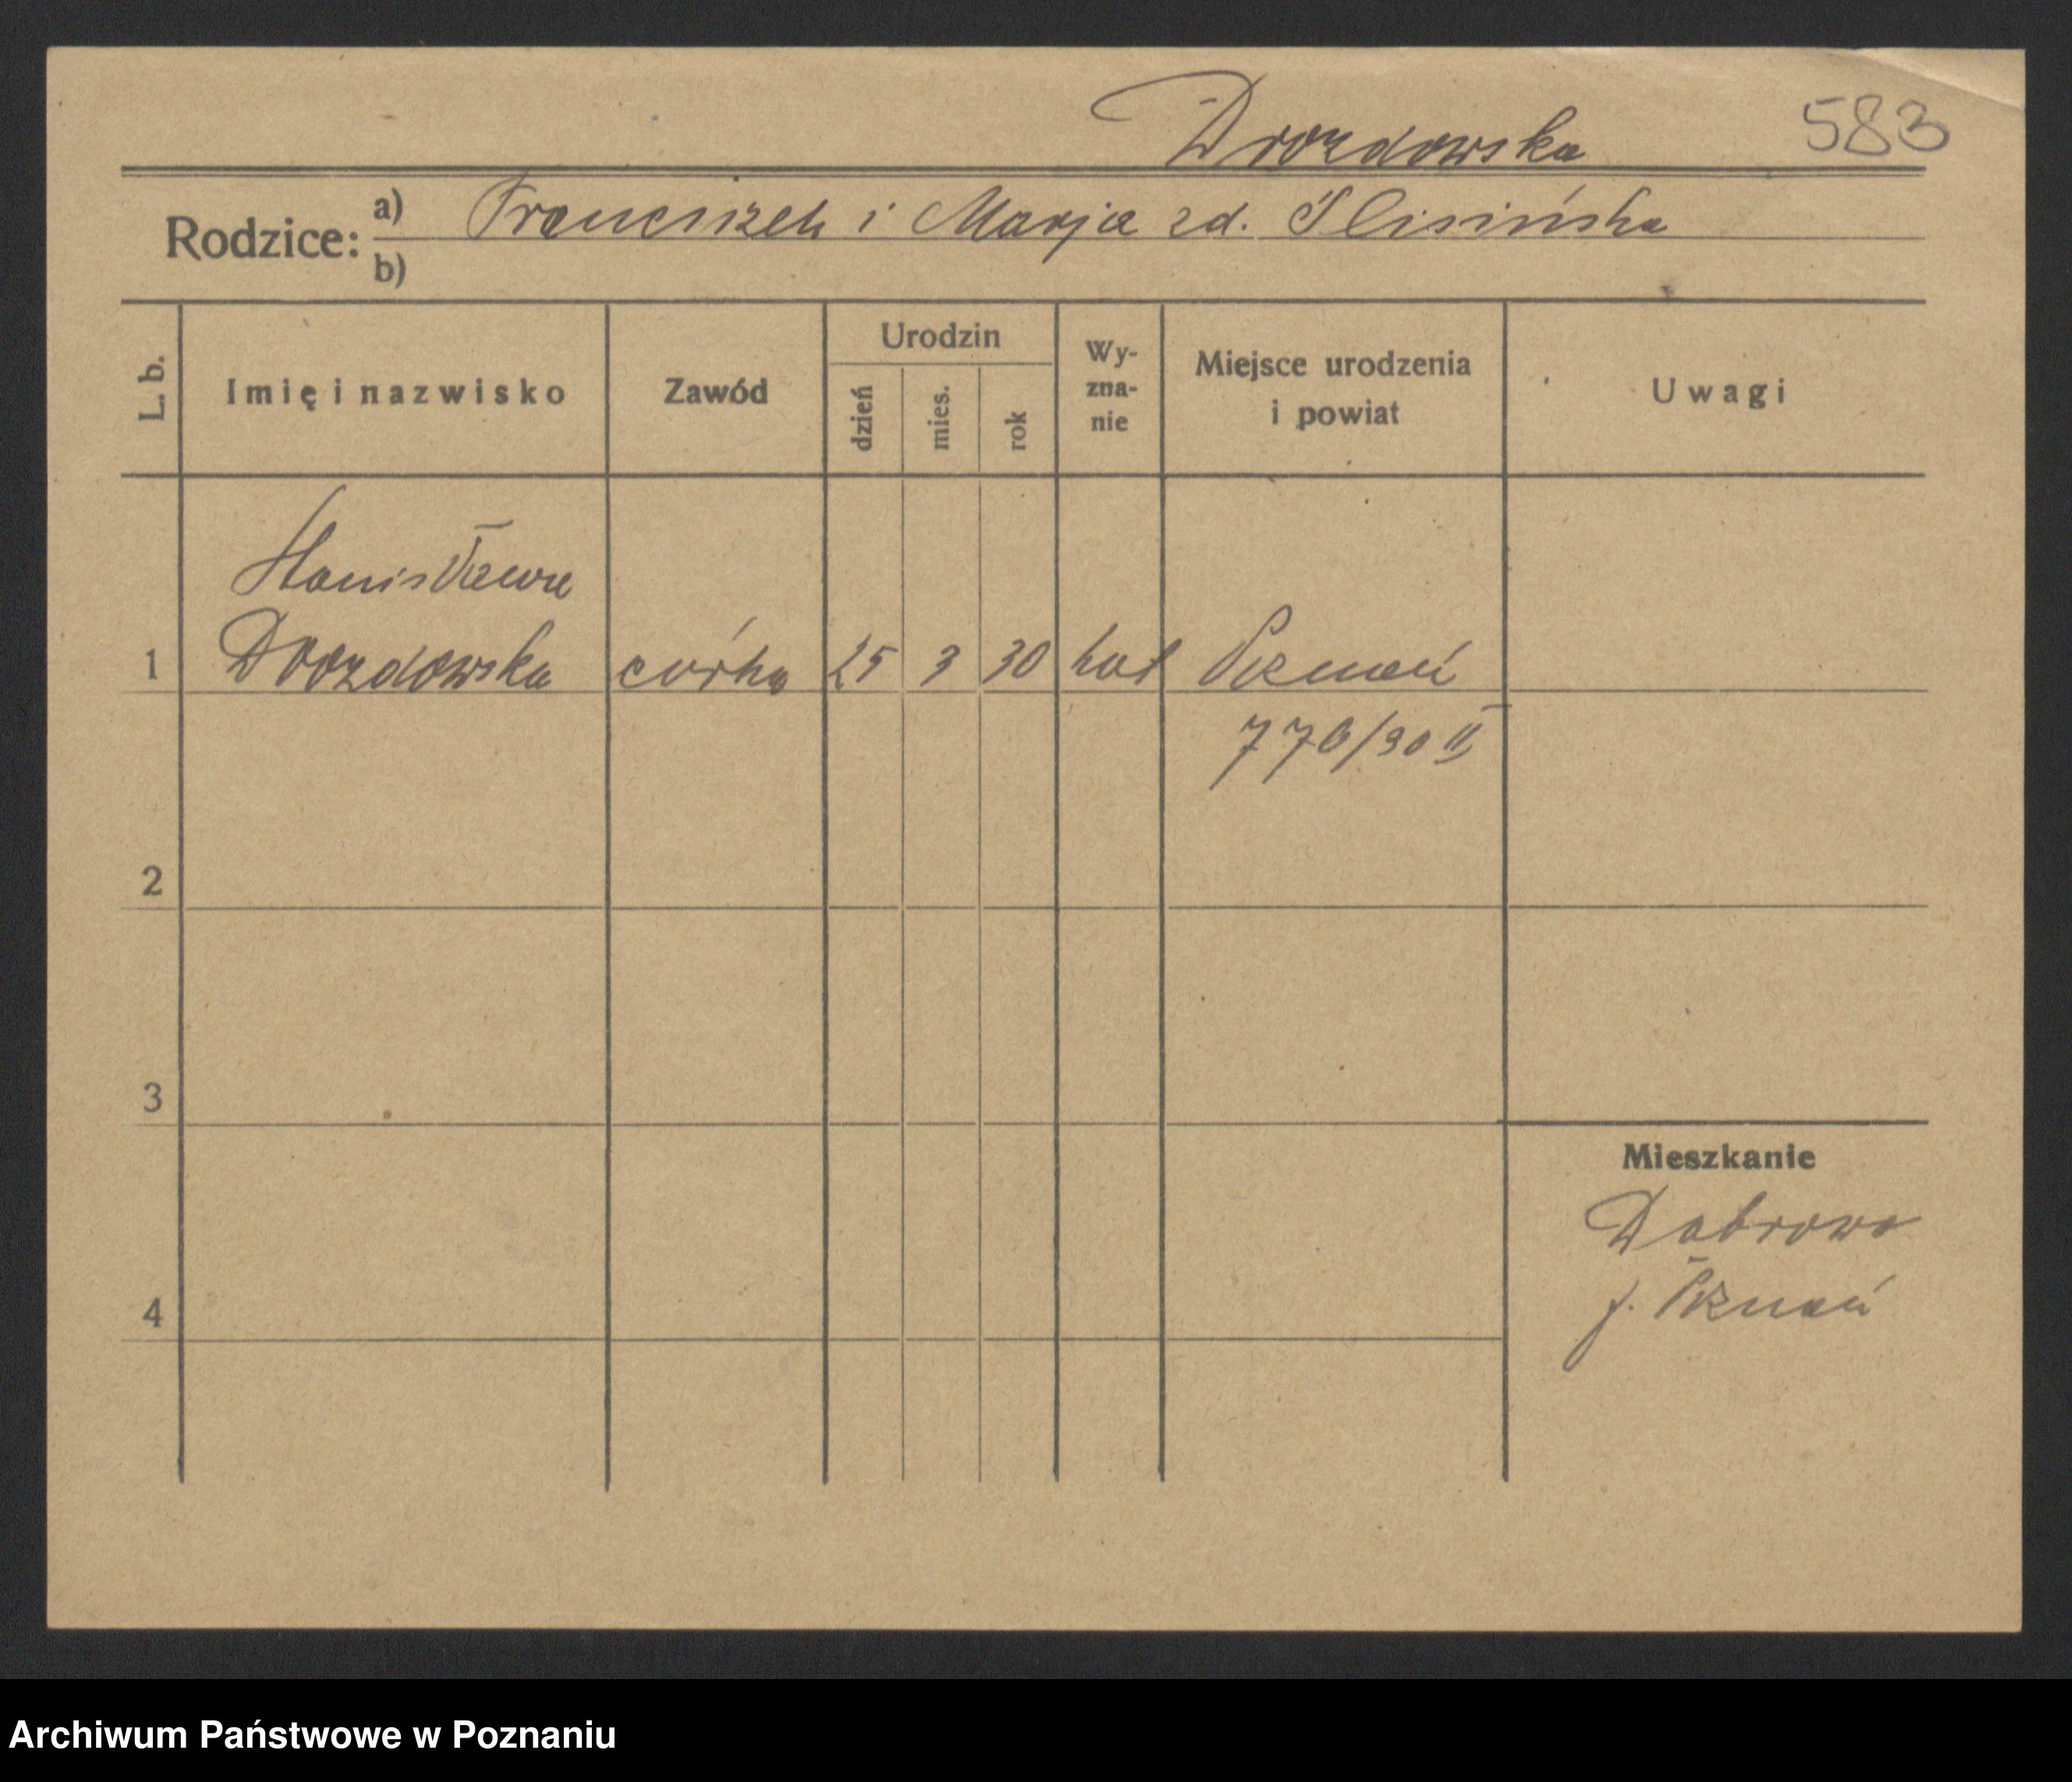 Drozdowska 583
Rodzice: a) Franciszek i Marja zd. Slisińska
b)
L. b. Imię i nazwisko Zawód Urodzin dzień mies. rok Wy-zna-nie Miejsce urodzenia i powiat Uwagi
Stanisława
1 Drozdowska córka 25 3 30 kat Poznań
776/30 II
2
3
Mieszkanie
Dąbrowa
4 p. Poznań
Archiwum Państwowe w Poznaniu